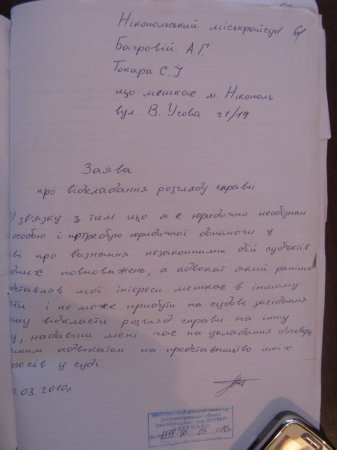 Нікопольський міськрайсуд
Багровій А Г
Токара С.І
що мешкає м. Нікополь
вул. В. Усова 21/19
Заява
про відкладання розгляду справи
У звязку з тим що я є юридично необізнан
особою і потребую юридичної допомоги у
ві про визнання незаконними дій субєктів
дних повноважень, а адвокат який раніше
дставляв мої інтереси мешкає в іншому
сті і не може прибути на судове засідання
ошу відкласти розгляд справи на іншу
у, надавши мені час на укладання договору
іншим адвокатам на представництво моїх
ресів у суді
.03.2010р.